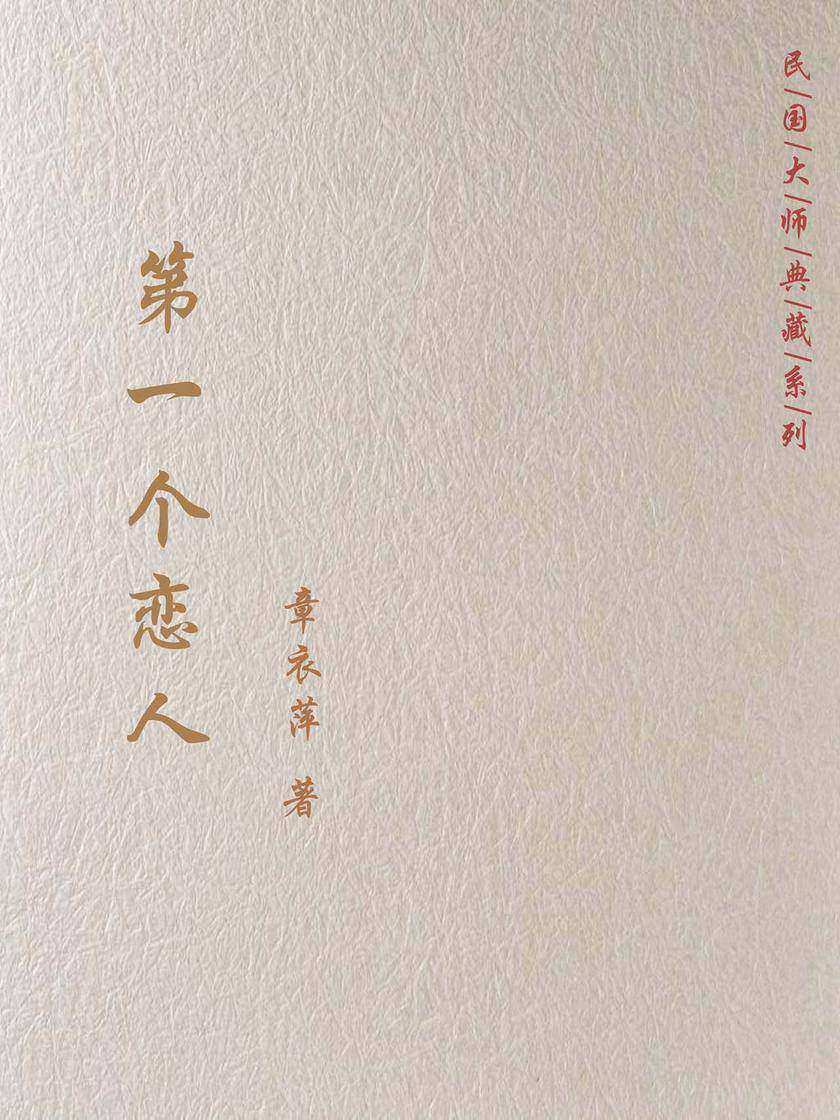 民|国|大|师|典|藏|系|列
第一个恋人
章衣萍 著